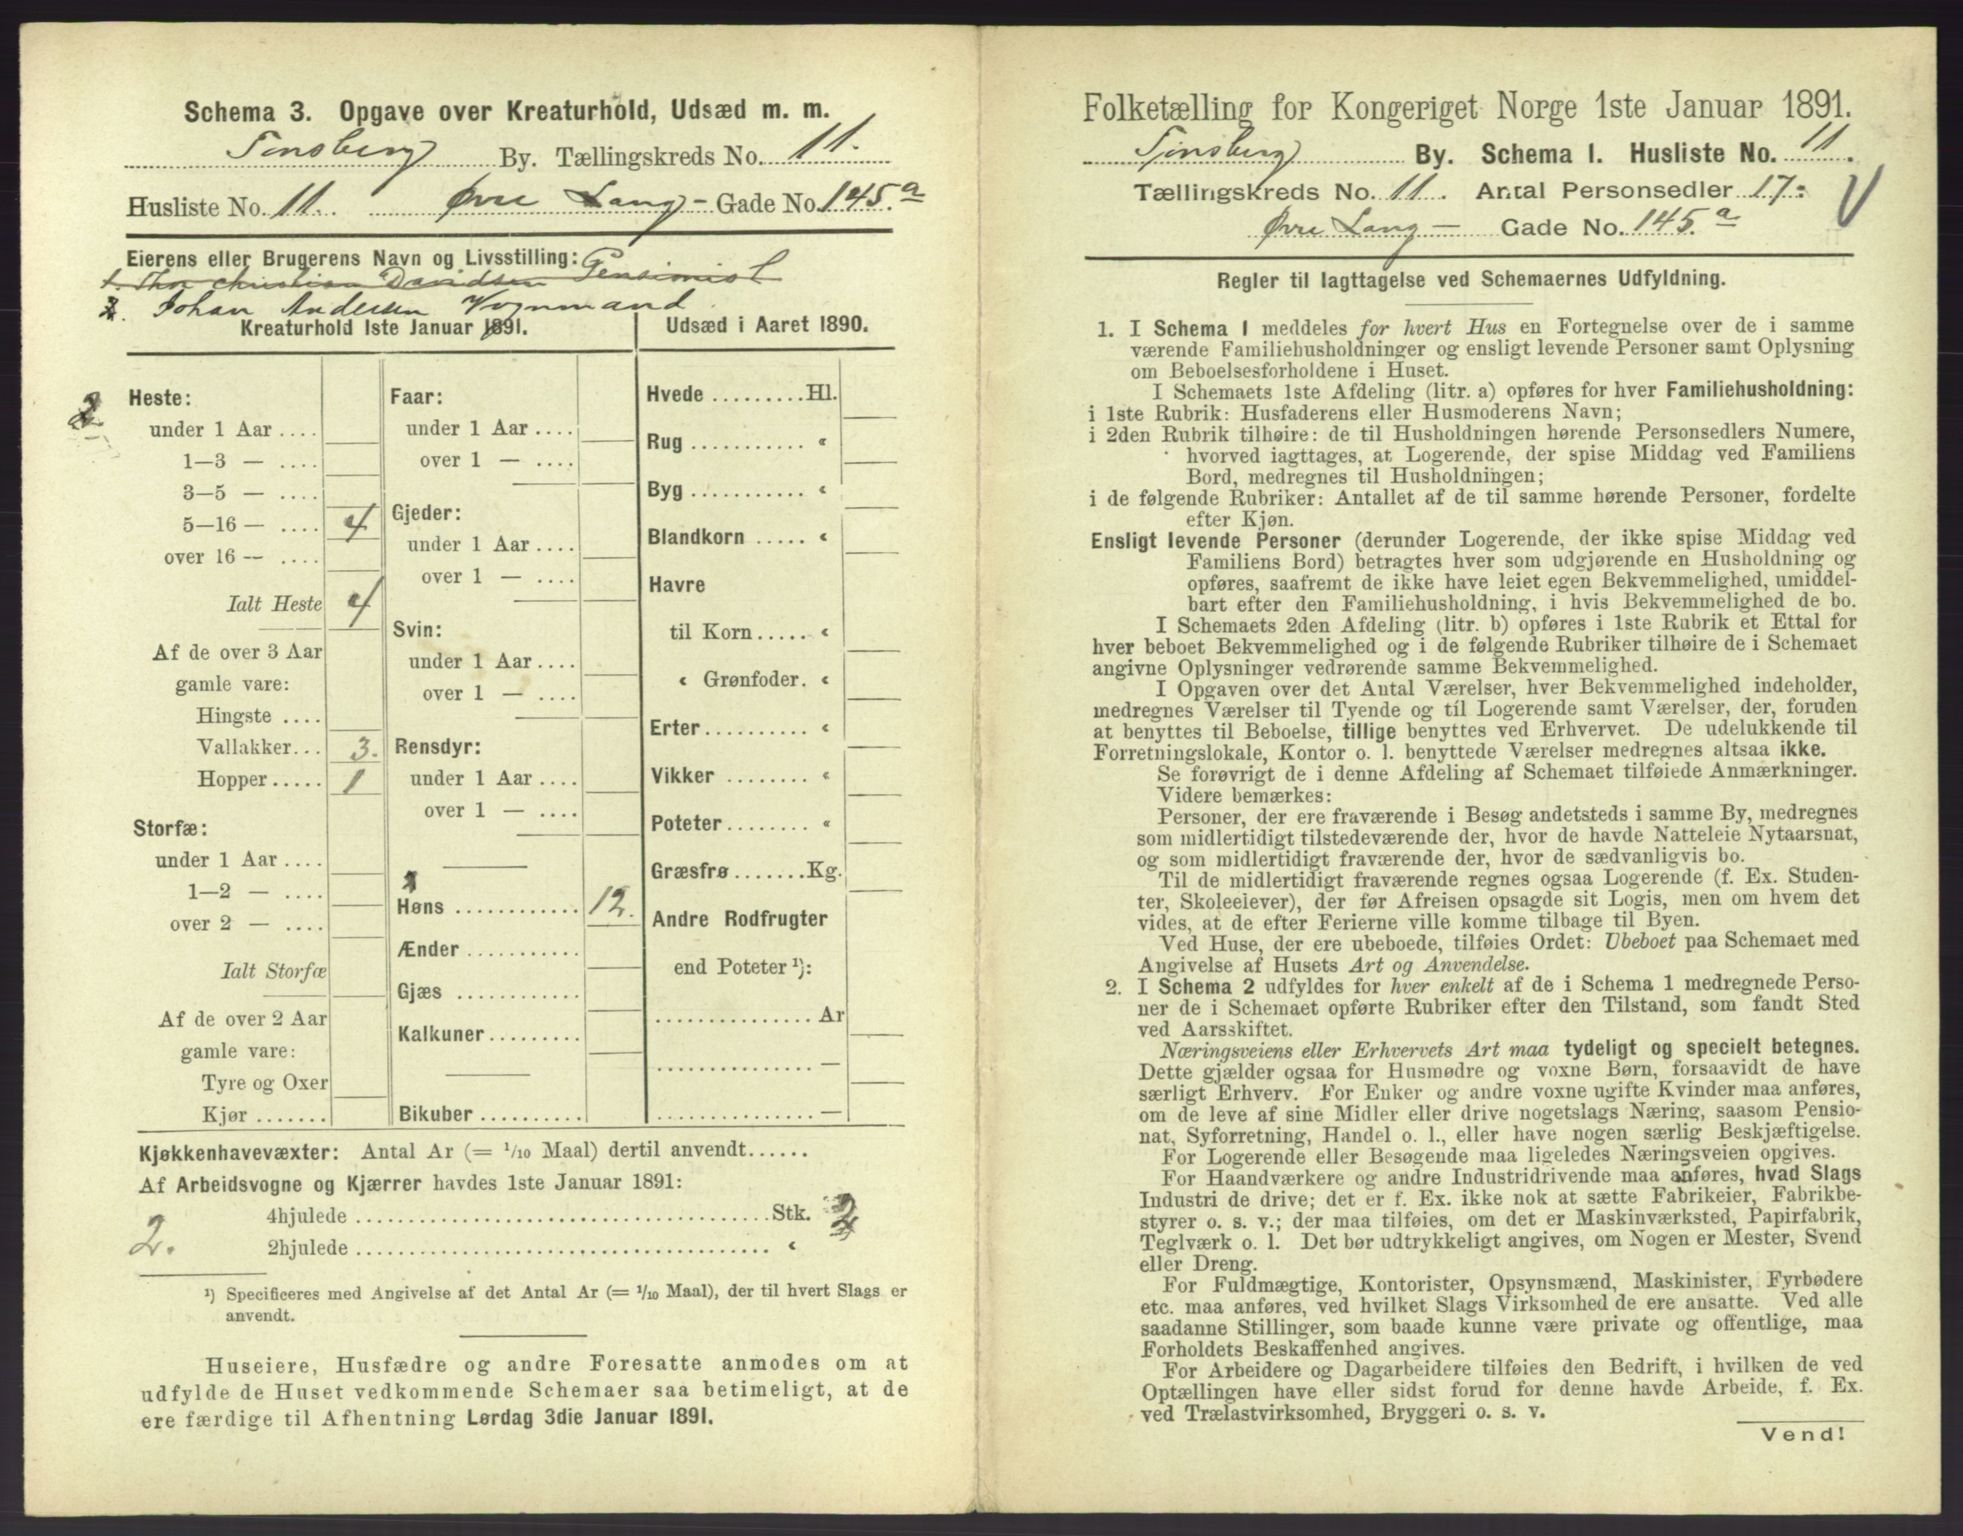 Schema 3. Opgave over Kreaturhold, Udsæd m. m.
Tønsberg By. Tællingskreds No. 11.
Husliste No. 11. Øvre Lang - Gade No. 145.a
Eierens eller Brugerens Navn og Livsstilling: Pensionist
1. Thor Christian Davidsen
2. Johan Andersen Vognmand.
Kreaturhold 1ste Januar 1891.
Udsæd i Aaret 1890.
2
Heste:
under 1 Aar ....
1—3 — ....
3—5 — ....
5—16 — .... 4
over 16 — ....
Ialt Heste 4
Af de over 3 Aar
gamle vare:
Hingste ....
Vallakker... 3.
Hopper..... 1
Storfæ:
under 1 Aar ....
1—2 — ....
over 2 — ....
Ialt Storfæ
Af de over 2 Aar
gamle vare:
Tyre og Oxer
Kjør .......
Faar:
under 1 Aar ....
over 1 — ....
Gjeder:
under 1 Aar ....
over 1 — ....
Svin:
under 1 Aar ....
over 1 — ....
Rensdyr:
under 1 Aar ....
over 1 — ....
1
Høns ............ 12.
Ænder ...........
Gjæs ............
Kalkuner.........
Bikuber ..........
Hvede .........Hl.
Rug ........... «
Byg ........... «
Blandkorn ..... «
Havre
til Korn..... «
« Grønfoder. «
Erter.......... «
Vikker ........ «
Poteter........ «
Græsfrø.......Kg.
Andre Rodfrugter
end Poteter ¹):
............... Ar
............... —
............... —
Kjøkkenhavevæxter: Antal Ar (= 1/10 Maal) dertil anvendt......
Af Arbeidsvogne og Kjærrer havdes 1ste Januar 1891:
4hjulede ........................................ Stk. 2
2. 2hjulede ........................................ «
¹) Specificeres med Angivelse af det Antal Ar (= 1/10 Maal), der til hvert Slags er
anvendt.
Huseiere, Husfædre og andre Foresatte anmodes om at
udfylde de Huset vedkommende Schemaer saa betimeligt, at de
ere færdige til Afhentning Lørdag 3die Januar 1891.
Folketælling for Kongeriget Norge 1ste Januar 1891.
Tønsberg By. Schema 1. Husliste No. 11.
Tællingskreds No. 11. Antal Personsedler 17.
Øvre Lang — Gade No. 145.a
Regler til Iagttagelse ved Schemaernes Udfyldning.
1. I Schema 1 meddeles for hvert Hus en Fortegnelse over de i samme
værende Familiehusholdninger og ensligt levende Personer samt Oplysning
om Beboelsesforholdene i Huset.
I Schemaets 1ste Afdeling (litr. a) opføres for hver Familiehusholdning:
i 1ste Rubrik: Husfaderens eller Husmoderens Navn;
i 2den Rubrik tilhøire: de til Husholdningen hørende Personsedlers Numere,
hvorved iagttages, at Logerende, der spise Middag ved Familiens
Bord, medregnes til Husholdningen;
i de følgende Rubriker: Antallet af de til samme hørende Personer, fordelte
efter Kjøn.
Ensligt levende Personer (derunder Logerende, der ikke spise Middag ved
Familiens Bord) betragtes hver som udgjørende en Husholdning og
opføres, saafremt de ikke have leiet egen Bekvemmelighed, umiddel-
bart efter den Familiehusholdning, i hvis Bekvemmelighed de bo.
I Schemaets 2den Afdeling (litr. b) opføres i 1ste Rubrik et Ettal for
hver beboet Bekvemmelighed og i de følgende Rubriker tilhøire de i Schemaet
angivne Oplysninger vedrørende samme Bekvemmelighed.
I Opgaven over det Antal Værelser, hver Bekvemmelighed indeholder,
medregnes Værelser til Tyende og til Logerende samt Værelser, der, foruden
at benyttes til Beboelse, tillige benyttes ved Erhvervet. De udelukkende til
Forretningslokale, Kontor o. l. benyttede Værelser medregnes altsaa ikke.
Se forøvrigt de i denne Afdeling af Schemaet tilføiede Anmærkninger.
Videre bemærkes:
Personer, der ere fraværende i Besøg andetsteds i samme By, medregnes
som midlertidigt tilstedeværende der, hvor de havde Natteleie Nytaarsnat,
og som midlertidigt fraværende der, hvor de sædvanligvis bo.
Til de midlertidigt fraværende regnes ogsaa Logerende (f. Ex. Studen-
ter, Skoleeiever), der før Afreisen opsagde sit Logis, men om hvem det
vides, at de efter Ferierne ville komme tilbage til Byen.
Ved Huse, der ere ubeboede, tilføies Ordet: Ubeboet paa Schemaet med
Angivelse af Husets Art og Anvendelse.
2. I Schema 2 udfyldes for hver enkelt af de i Schema 1 medregnede Perso-
ner de i Schemaet opførte Rubriker efter den Tilstand, som fandt Sted
ved Aarsskiftet.
Næringsveiens eller Erhvervets Art maa tydeligt og specielt betegnes.
Dette gjælder ogsaa for Husmødre og voxne Børn, forsaavidt de have
særligt Erhverv. For Enker og andre voxne ugifte Kvinder maa anføres,
om de leve af sine Midler eller drive nogetslags Næring, saasom Pensio-
nat, Syforretning, Handel o. l., eller have nogen særlig Beskjæftigelse.
For Logerende eller Besøgende maa ligeledes Næringsveien opgives.
For Haandværkere og andre Industridrivende maa anføres, hvad Slags
Industri de drive; det er f. Ex. ikke nok at sætte Fabrikeier, Fabrikbe-
styrer o. s. v.; der maa tilføies, om det er Maskinværksted, Papirfabrik,
Teglværk o. l. Det bør udtrykkeligt angives, om Nogen er Mester, Svend
eller Dreng.
For Fuldmægtige, Kontorister, Opsynsmænd, Maskinister, Fyrbødere
etc. maa anføres, ved hvilket Slags Virksomhed de ere ansatte. Ved alle
saadanne Stillinger, som baade kunne være private og offentlige, maa
Forholdets Beskaffenhed angives.
For Arbeidere og Dagarbeidere tilføies den Bedrift, i hvilken de ved
Optællingen have eller sidst forud for denne havde Arbeide, f. Ex.
ved Trælastvirksomhed, Bryggeri o. s. v.
Vend!